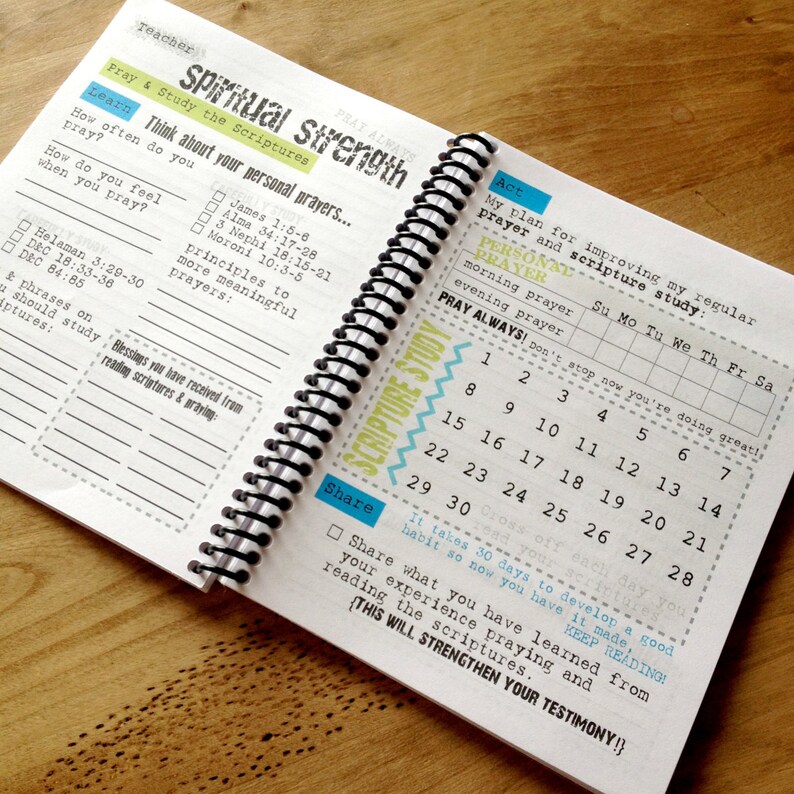 Teacher
spiritual strength
PRAY ALWAYS
Pray & Study the Scriptures
Learn
Think about your personal prayers...
How often do you
pray?
How do you feel
when you pray?
James 1:5-6
Alma 34:17-28
3 Nephi 18:15-21
Moroni 10:3-5
principles to
more meaningful
prayers:
STUDY
Helaman 3:29-30
D&C 18:33-36
D&C 84:85
& phrases on
you should study
scriptures:
Blessings you have received from
reading scriptures & praying:
Act
My plan for improving my regular
prayer and scripture study:
PERSONAL
PRAYER
Su Mo Tu We Th Fr Sa
morning prayer
evening prayer
PRAY ALWAYS! Don't stop now you're doing great!
SCRIPTURE STUDY
1 2 3 4 5 6 7
8 9 10 11 12 13 14
15 16 17 18 19 20 21
22 23 24 25 26 27 28
29 30
Cross off each day you
read your scriptures
Share
It takes 30 days to develop a good
habit so now you have it made,
KEEP READING!
Share what you have learned from
your experience praying and
reading the scriptures.
{THIS WILL STRENGTHEN YOUR TESTIMONY!}